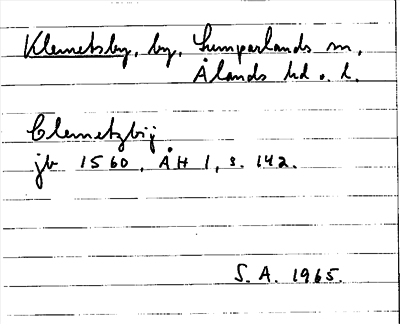 Klemetsby, by, Lumparlands sn,
Ålands hd o. l.
Clemetzbÿ
jb 1560, ÅH 1, s. 142.
S. A. 1965.